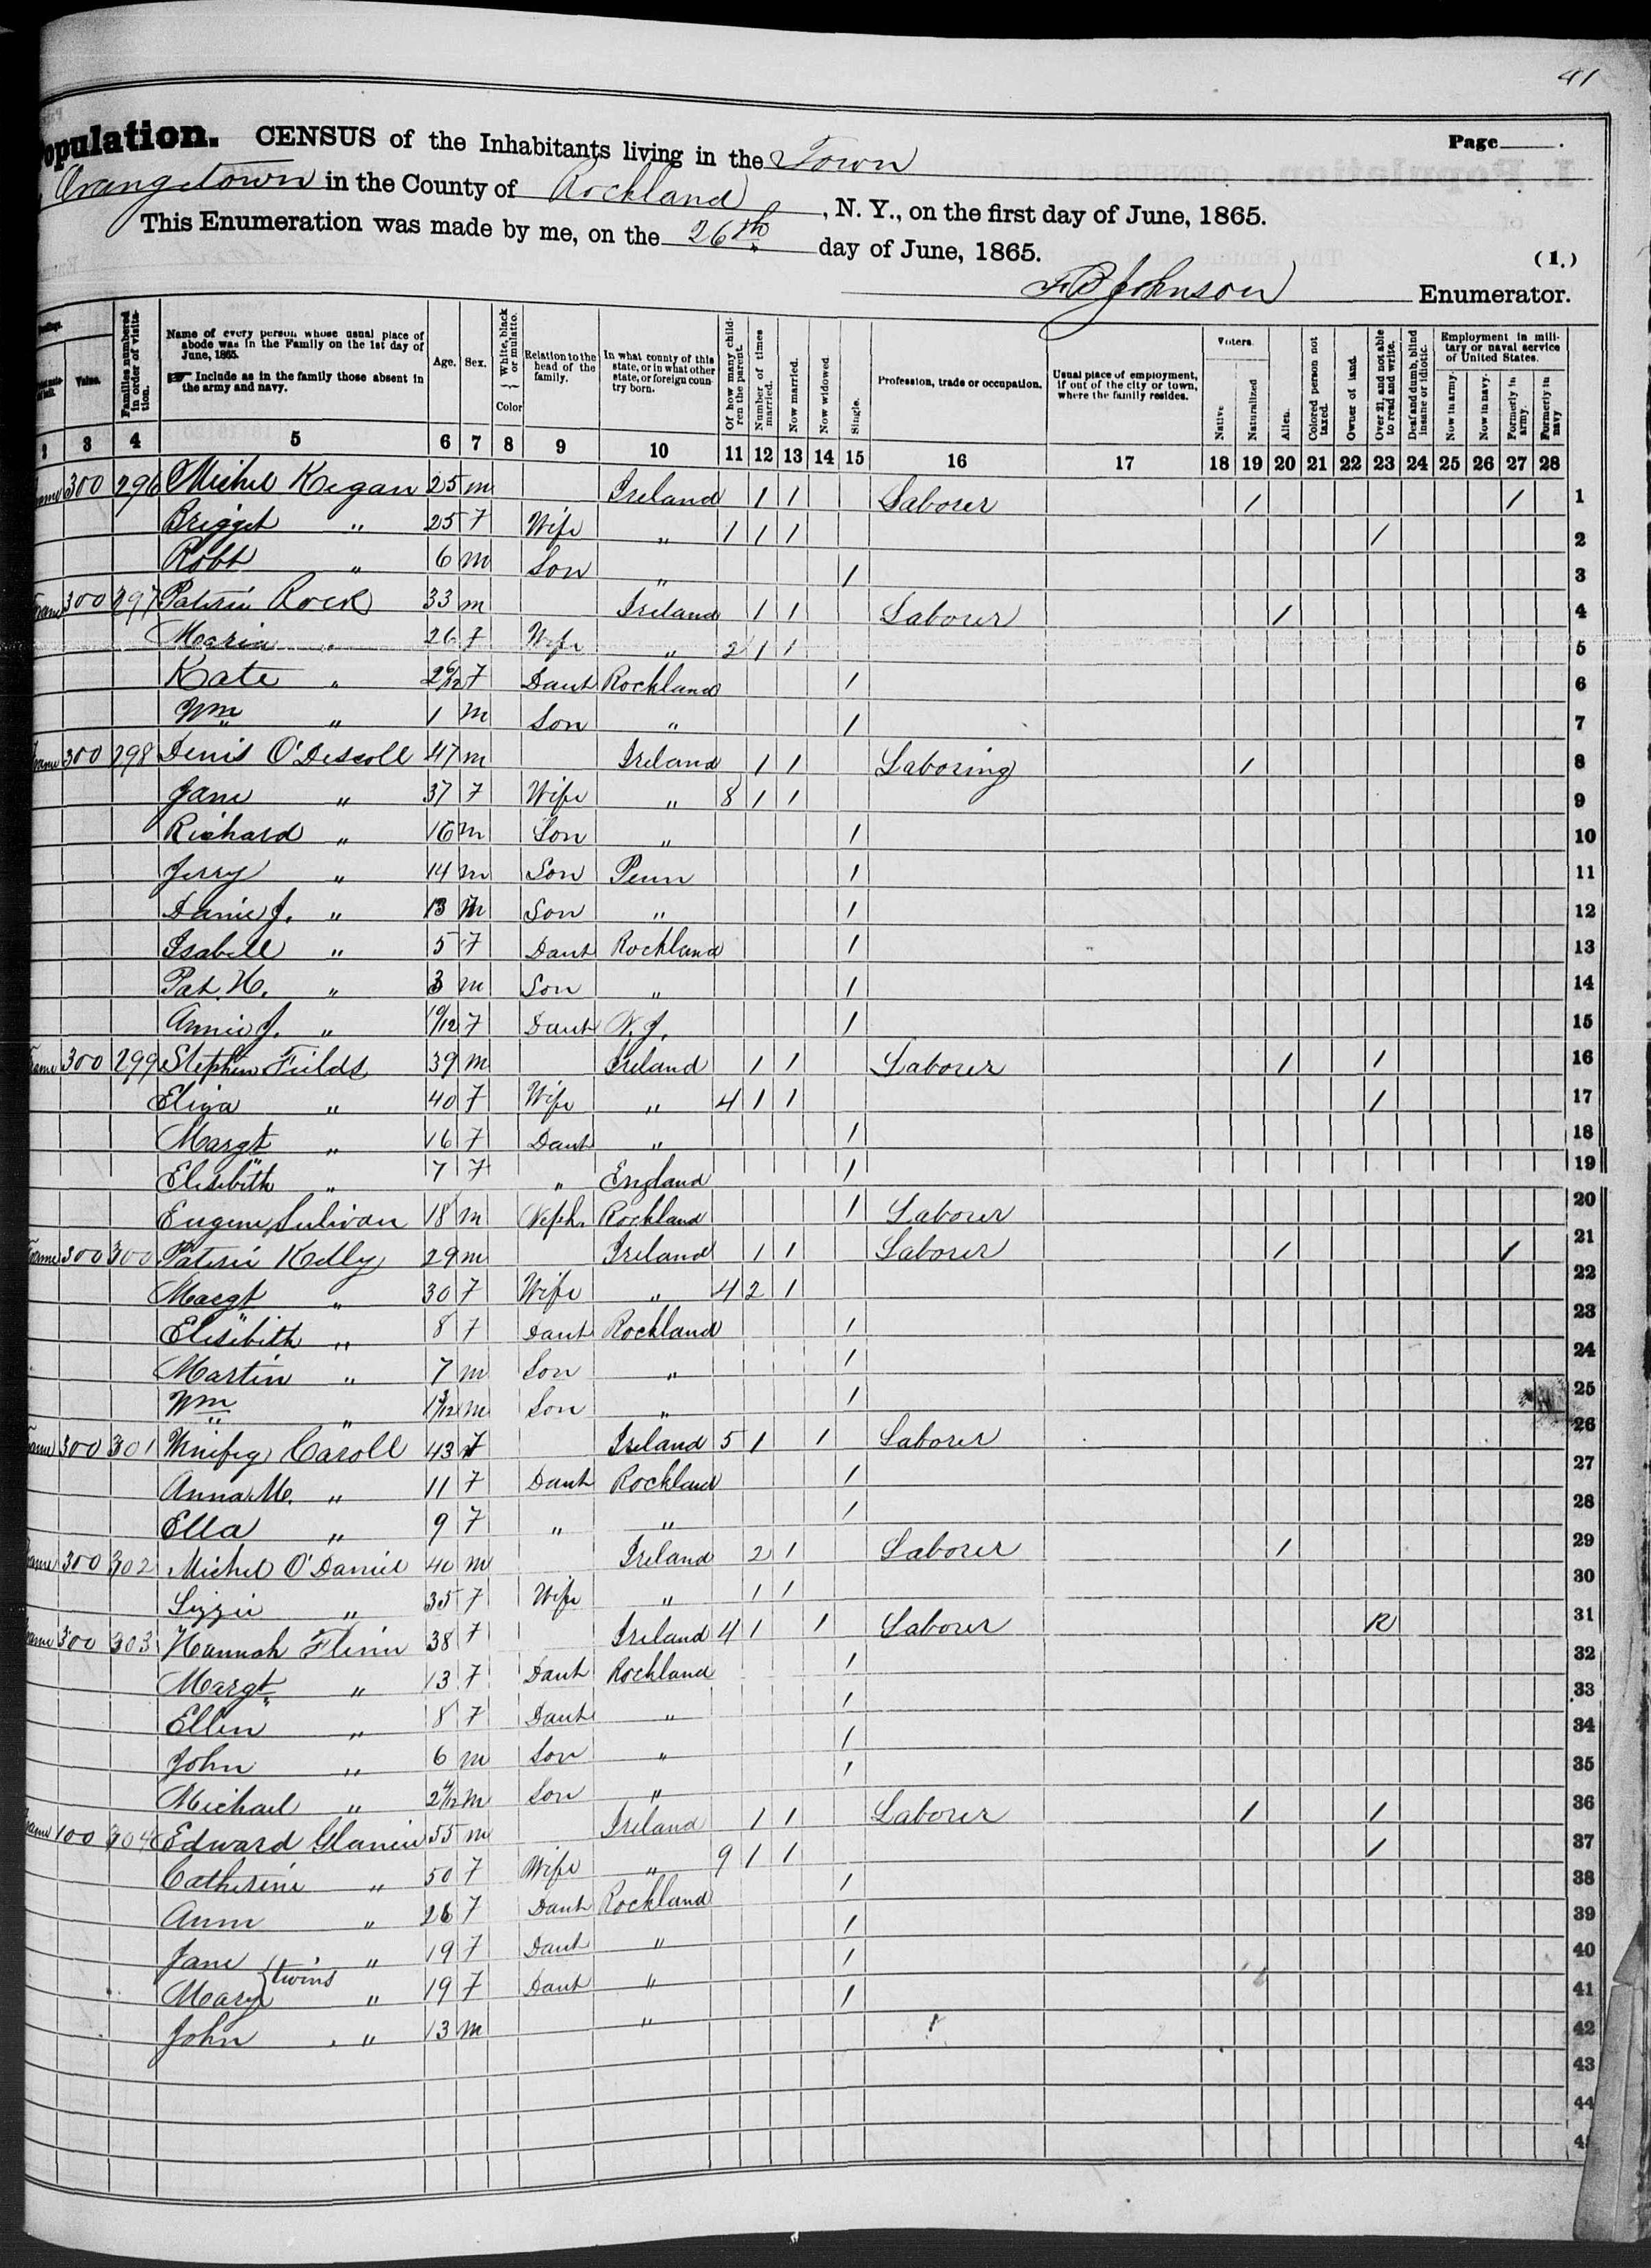 41
Population. CENSUS of the Inhabitants living in the Town Page
Orangetown in the County of Rockland, N. Y., on the first day of June, 1865.
This Enumeration was made by me, on the 26th day of June, 1865.
(1.)
F B Johnson Enumerator.
Value. Families numbered in order of visitation. Name of every person whose usual place of abode was in the Family on the 1st day of June, 1865. Include as in the family those absent in the army and navy. Age. Sex. White, black or mulatto. Color Relation to the head of the family. In what county of this state, or in what other state, or foreign country born. Of how many children the parent. Number of times married. Now married. Now widowed Single. Profession, trade or occupation. Usual place of employment, if out of the city or town, where the family resides. Voters. Native Naturalized Alien. Colored person not taxed. Owner of land. Over 21, and not able to read and write. Deaf and dumb, blind insane or idiotic. Employment in military or naval service of United States. Now in army. Now in navy. Formerly in army. Formerly in navy
3 4 5 6 7 8 9 10 11 12 13 14 15 16 17 18 19 20 21 22 23 24 25 26 27 28
Frame 300 296 Michel Kegan 25 m Ireland 1 1 Laborer 1 1 1
Brigget " 25 F Wife " 1 1 1 1 2
Robt " 6 m Son " 1 3
Frame 300 297 Patric Rock 33 m Ireland 1 1 Laborer 1 4
Maria " 26 F Wife " 2 1 1 5
Kate " 2 6/12 F Daut Rockland 1 6
Wm " 1 m Son " 1 7
Frame 300 298 Denis O'Descoll 47 m Ireland 1 1 Laboring 1 8
Jane " 37 F Wife " 8 1 1 9
Richard " 16 m Son " 1 10
Jerry " 14 m Son Penn 1 11
Danie J. " 13 m Son " 1 12
Isabell " 5 F Daut Rockland 1 13
Pat. H. " 3 m Son " 1 14
Annie J. " 10/12 F Daut N. J. 1 15
Frame 300 299 Stephen Fields 39 m Ireland 1 1 Laborer 1 1 16
Eliza " 40 F Wife " 4 1 1 1 17
Margt " 16 F Daut " 1 18
Elisibith " 7 F " England 1 19
Eugene Sulivan 18 m Neph. Rockland 1 Laborer 20
Frame 300 300 Patric Kelly 29 m Ireland 1 1 Laborer 1 1 21
Margt " 30 F Wife " 4 2 1 22
Elisibith " 8 F Daut Rockland 1 23
Martin " 7 m Son " 1 24
Wm " m Son " 1 25
Frame 300 301 Winifeg Caroll 43 F Ireland 5 1 1 Laborer 26
Anna M. " 11 F Daut Rockland 1 27
Ella " 9 F " " 1 28
Frame 300 302 Michel O'Daniel 40 m Ireland 2 1 Laborer 1 29
Lizzie " 35 F Wife " 1 1 30
Frame 300 303 Hannah Flinn 38 F Ireland 4 1 1 Laborer R 31
Margt " 13 F Daut Rockland 1 32
Ellen " 8 F Daut " 1 33
John " 6 m Son " 1 34
Michael " 2 4/12 m Son " 1 35
Frame 100 304 Edward Glanin 55 m Ireland 1 1 Laborer 1 1 36
Catherine " 50 F Wife " 9 1 1 1 37
Ann " 26 F Daut Rockland 1 38
Jane " 19 F Daut " 1 39
twins
Mary " 19 F Daut " 1 40
John " 13 m " 1 41
42
43
44